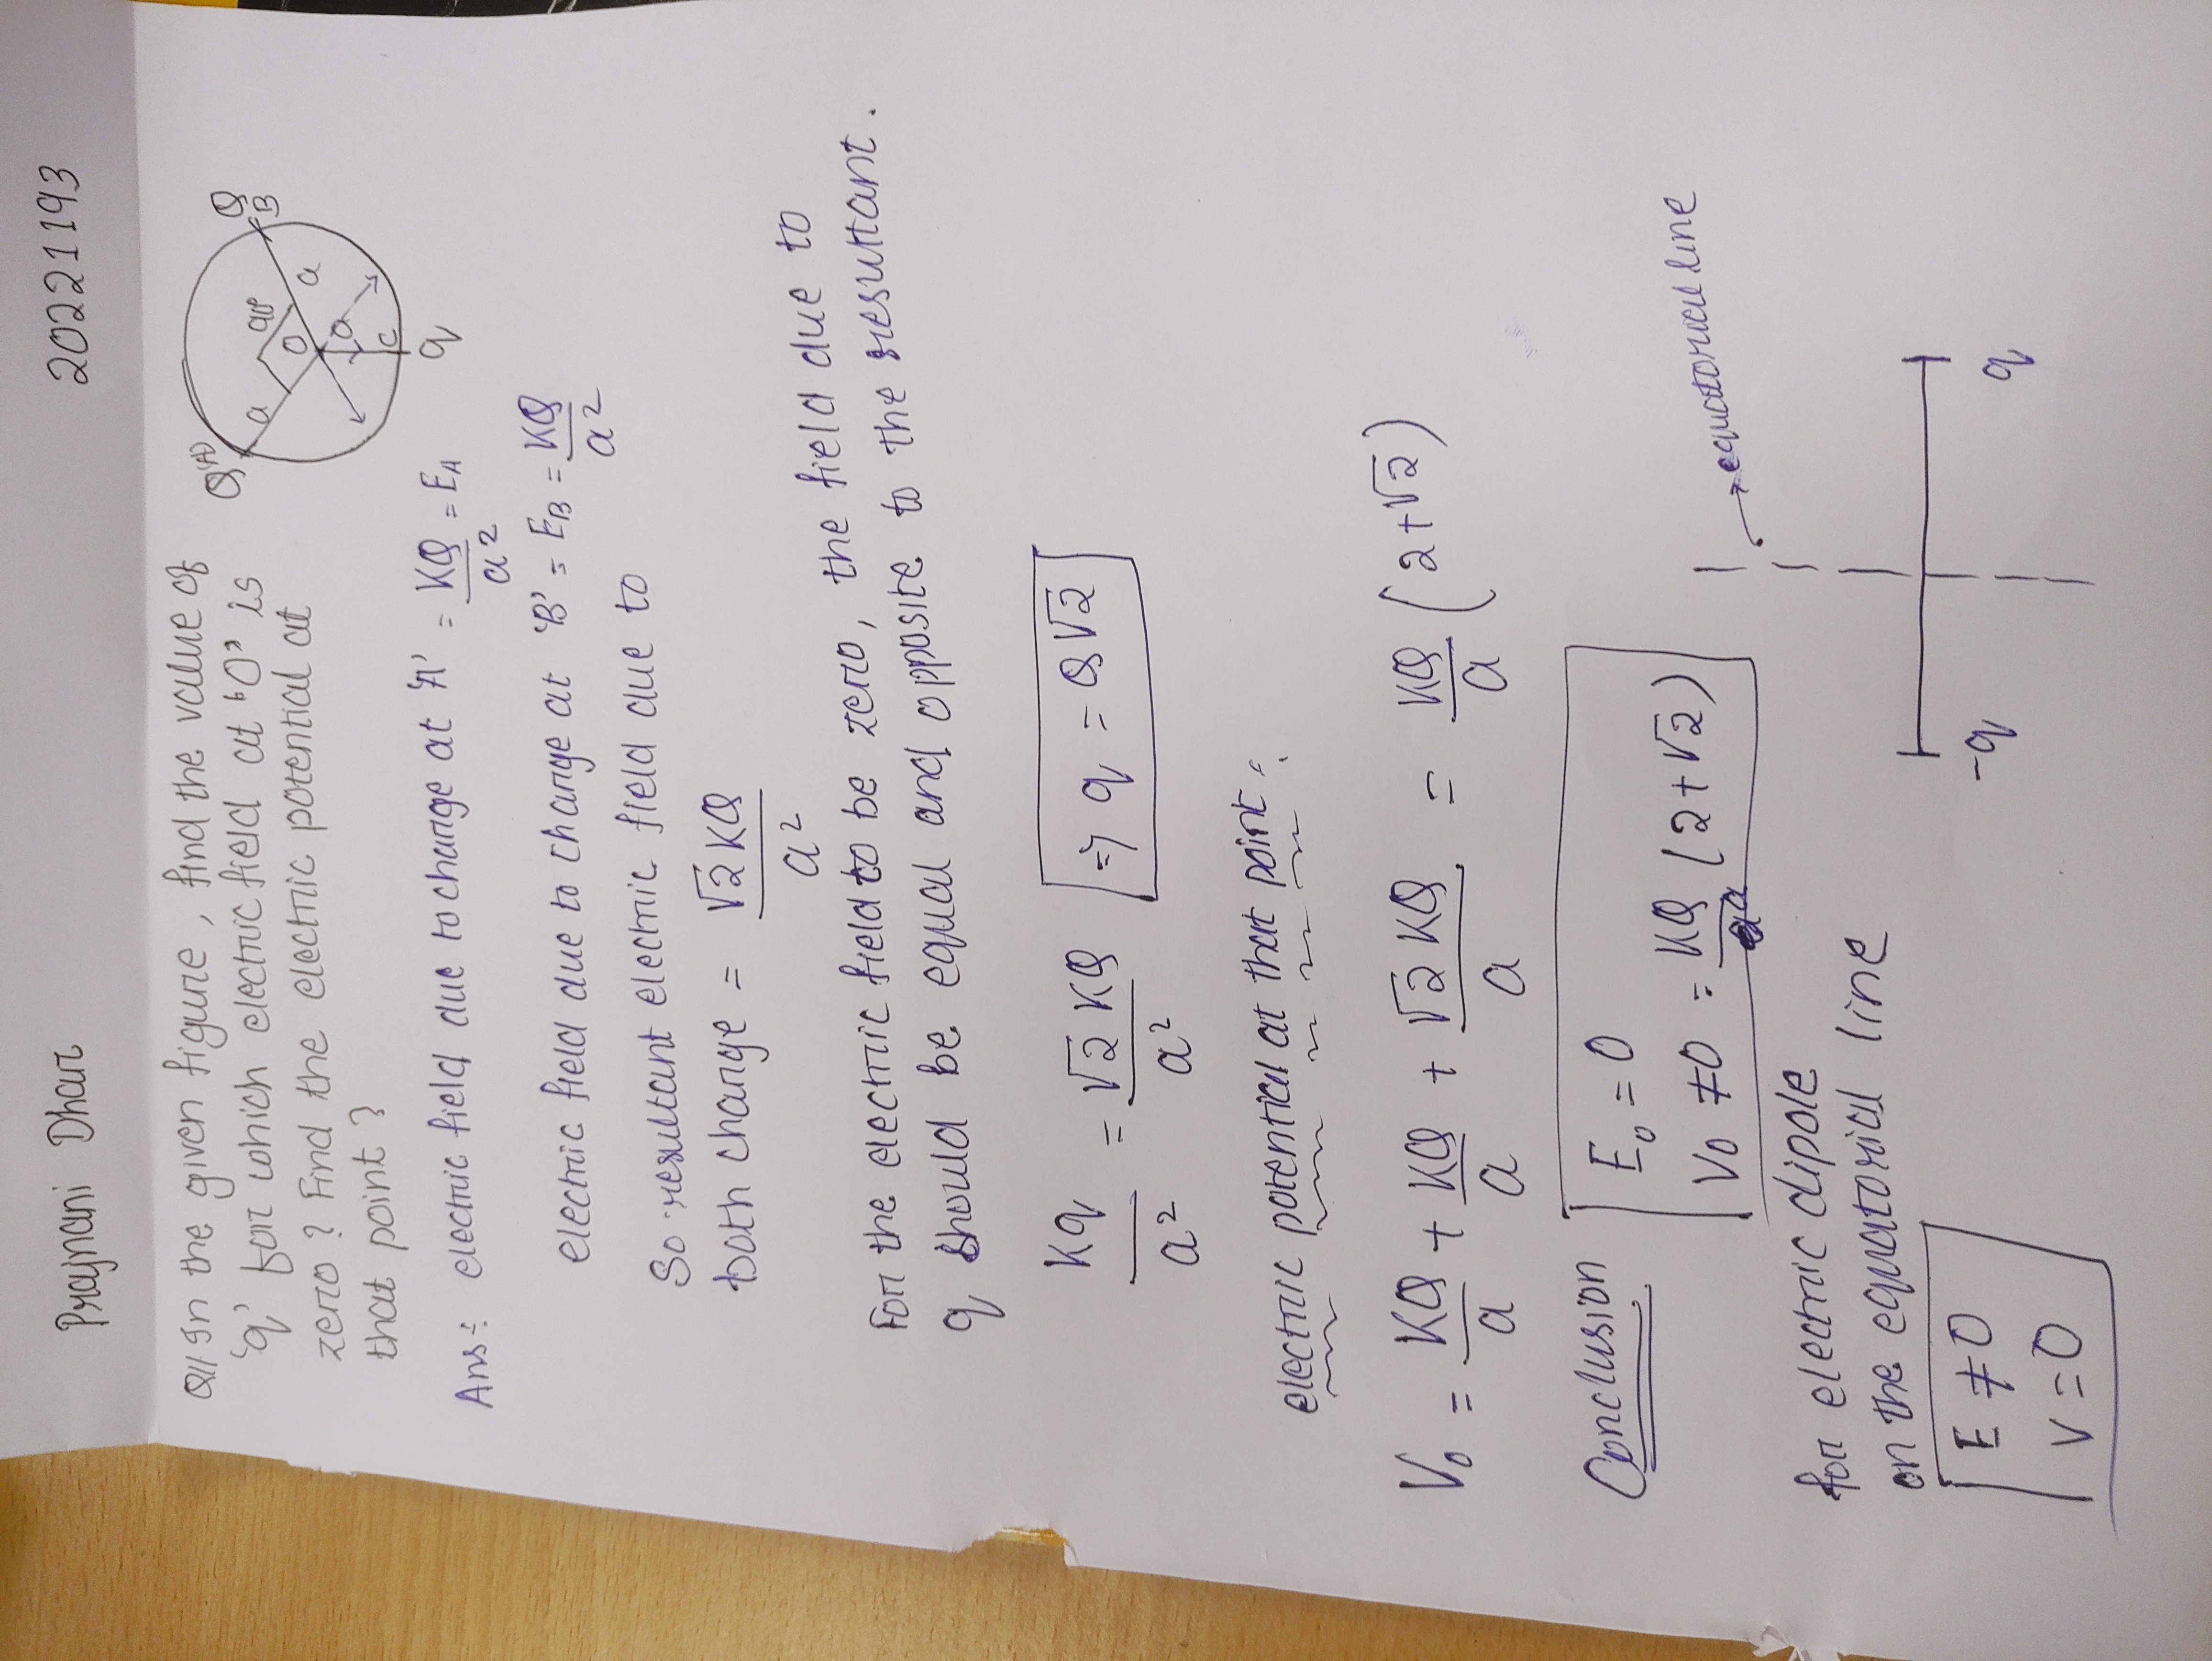 Prajnani Dhar 20221193
Q1/ In the given figure, find the value of
'q' for which electric field at 'O' is
zero? Find the electric potential at
that point?
Q(A)
Q
B
a
90°
O
a
a
C
q
Ans: electric field due to charge at 'A' = KQ/a² = E_A
electric field due to charge at 'B' = E_B = KQ/a²
So resultant electric field due to
both charge = √2KQ/a²
For the electric field to be zero, the field due to
q should be equal and opposite to the resultant.
Kq/a² = √2 KQ/a² ⇒ q = Q√2
electric potential at that point:
V₀ = KQ/a + KQ/a + √2 KQ/a = KQ/a (2+√2)
Conclusion
E₀ = 0
V₀ ≠ 0 = KQ/a (2+√2)
equatorial line
for electric dipole
on the equatorial line
E ≠ 0
V = 0
-q q